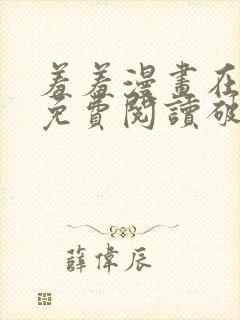 羞羞漫畫在
免費閱讀破
薛偉辰